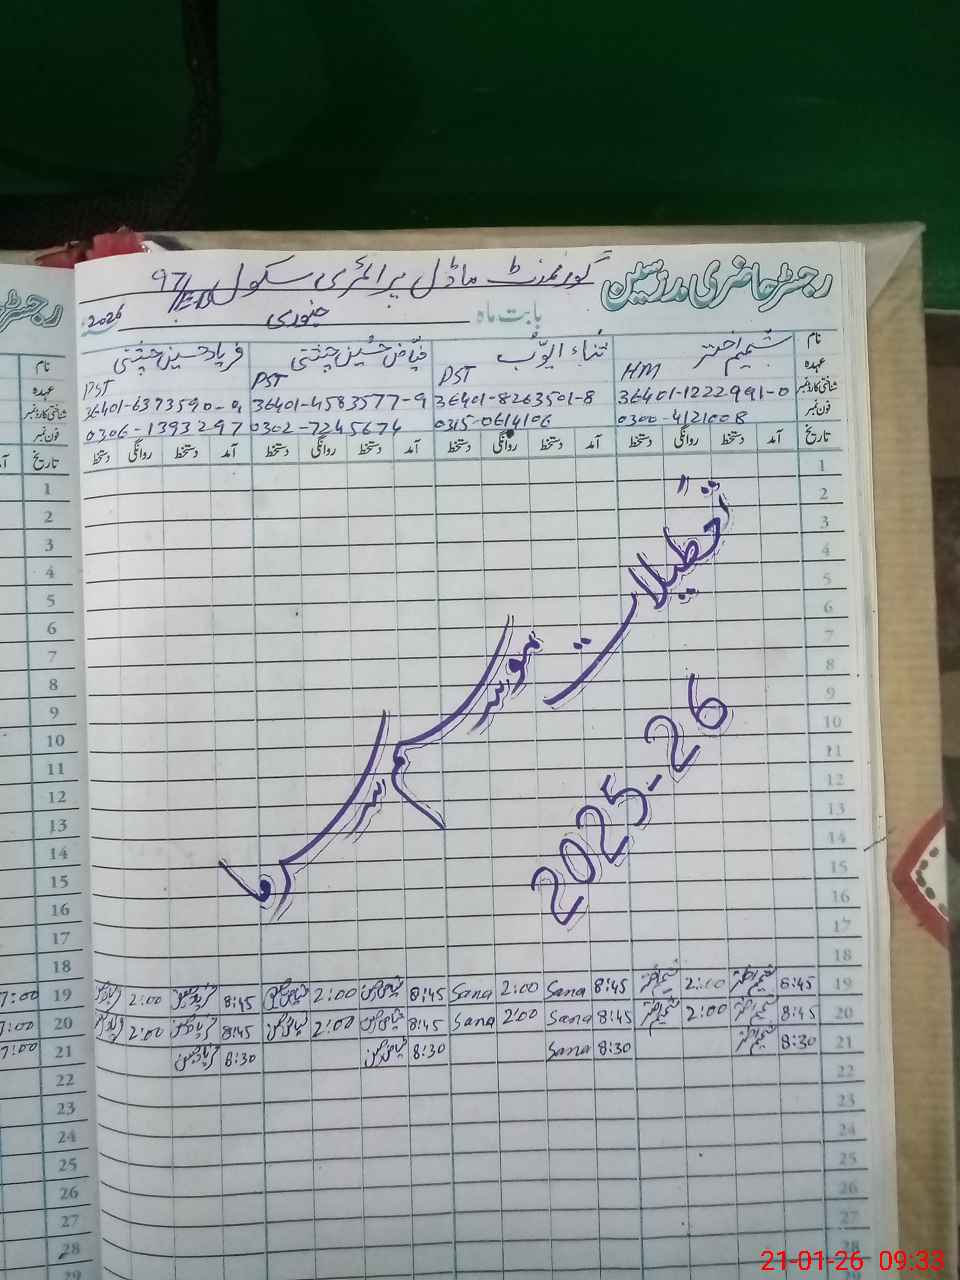 رجسٹر حاضری مدرسین
گورنمنٹ ماڈل پرائمری سکول 97/
بابت ماہ جنوری 2026
نام شمیم اختر ثناء ایوب فیاض حسین چشتی فرہاد حسین چشتی نام
عہدہ HM PST PST PST عہدہ
شناختی کارڈ نمبر 36401-1222991-0 36401-8263501-8 36401-4583577-9 36401-6373590-9 شناختی کارڈ نمبر
فون نمبر 0300-4121008 0315-0614106 0302-7245674 0306-1393297 فون نمبر
تاریخ آمد دستخط روانگی دستخط آمد دستخط روانگی دستخط آمد دستخط روانگی دستخط آمد دستخط روانگی دستخط تاریخ
1 1
2 2
3 3
4 4
5 5
6 6
7 7
8 8
9 9
10 10
11 11
12 12
13 13
14 14
15 15
16 16
17 17
18 18
تعطیلات موسم سرما
2025-26
19 8:45 2:00 8:45 Sana 2:00 Sana 8:45 2:00 8:45 2:00 19
20 8:45 2:00 8:45 Sana 2:00 Sana 8:45 2:00 8:45 2:00 20
21 8:30 8:30 Sana 8:30 8:30 21
22 22
23 23
24 24
25 25
26 26
27 27
28 28
29
21-01-26 09:33